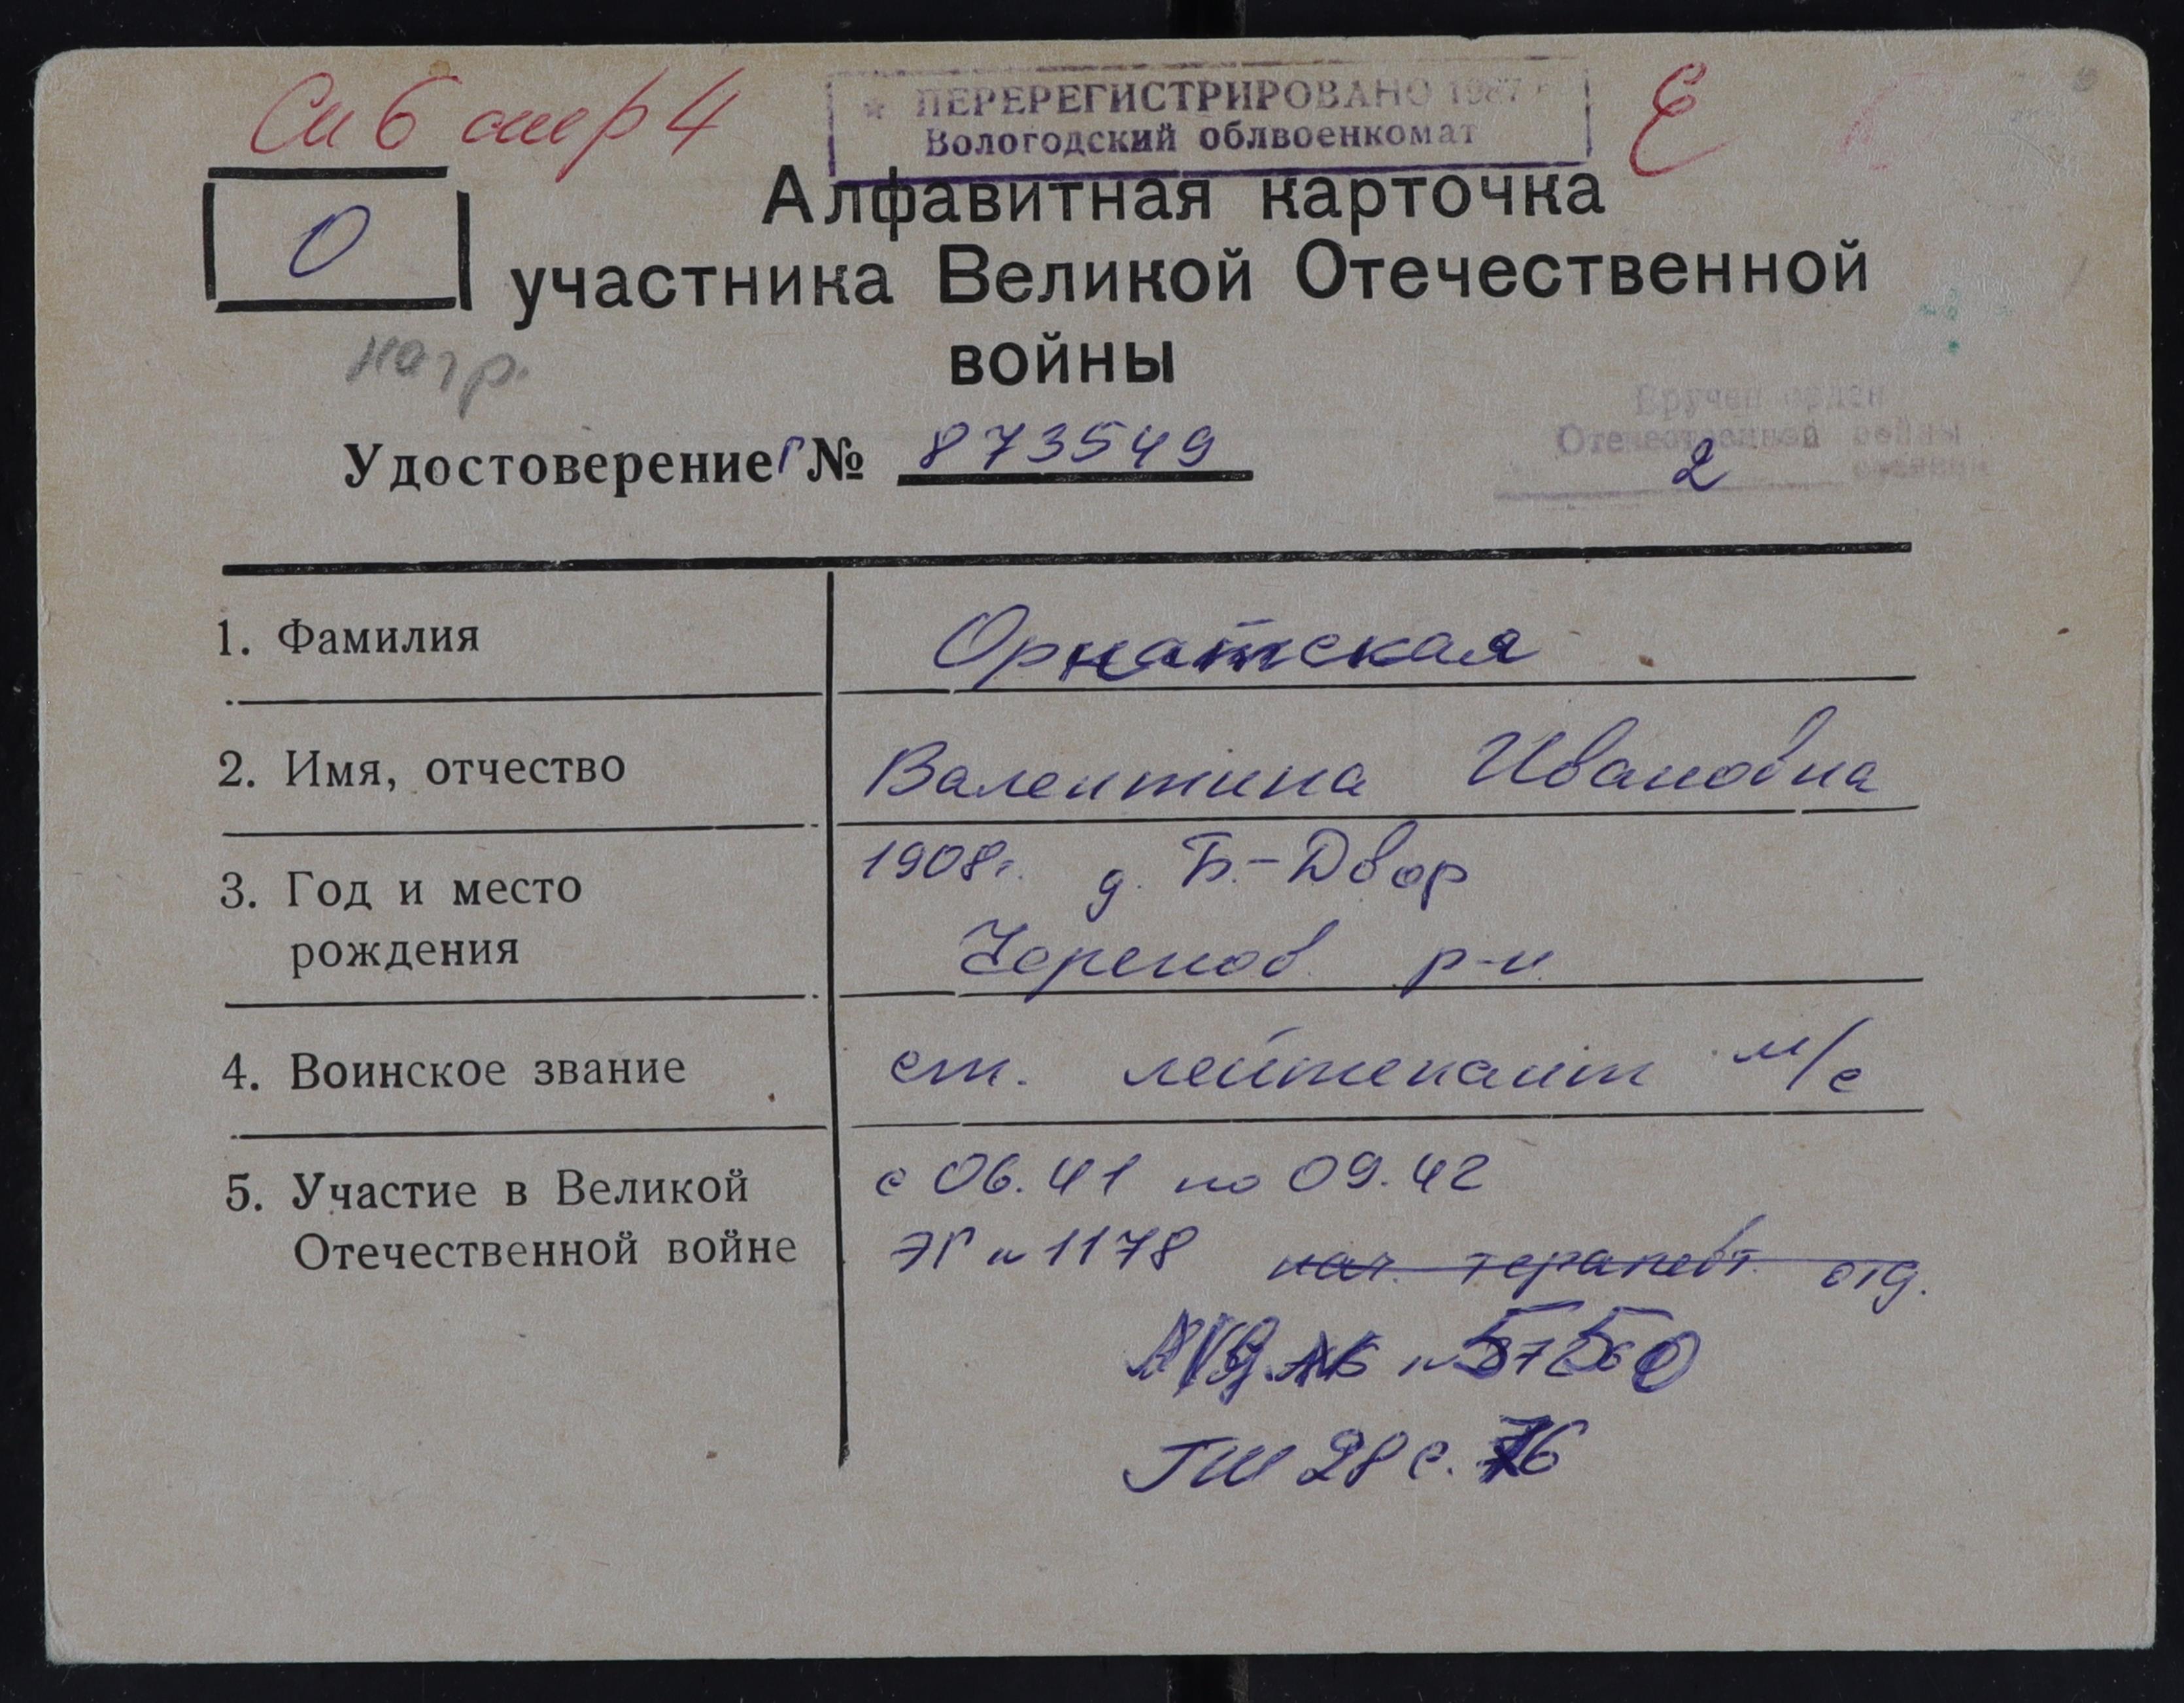 Си 6 опер 4
* ПЕРЕРЕГИСТРИРОВАНО 1987 г
Вологодский облвоенкомат
Е
О
Алфавитная карточка
участника Великой Отечественной
войны
нагр.
Вручен орден
Отечественной войны
2 степени
Удостоверение Г № 873549
1. Фамилия
Орнатская
2. Имя, отчество
Валентина Ивановна
3. Год и место
рождения
1908г. д. Б.-Двор
Черепов. р-н
4. Воинское звание
ст. лейтенант м/с
5. Участие в Великой
Отечественной войне
с 06.41 по 09.42
ЭГ № 1178 нач. терапевт. отд.
ГШ 28 с. 76